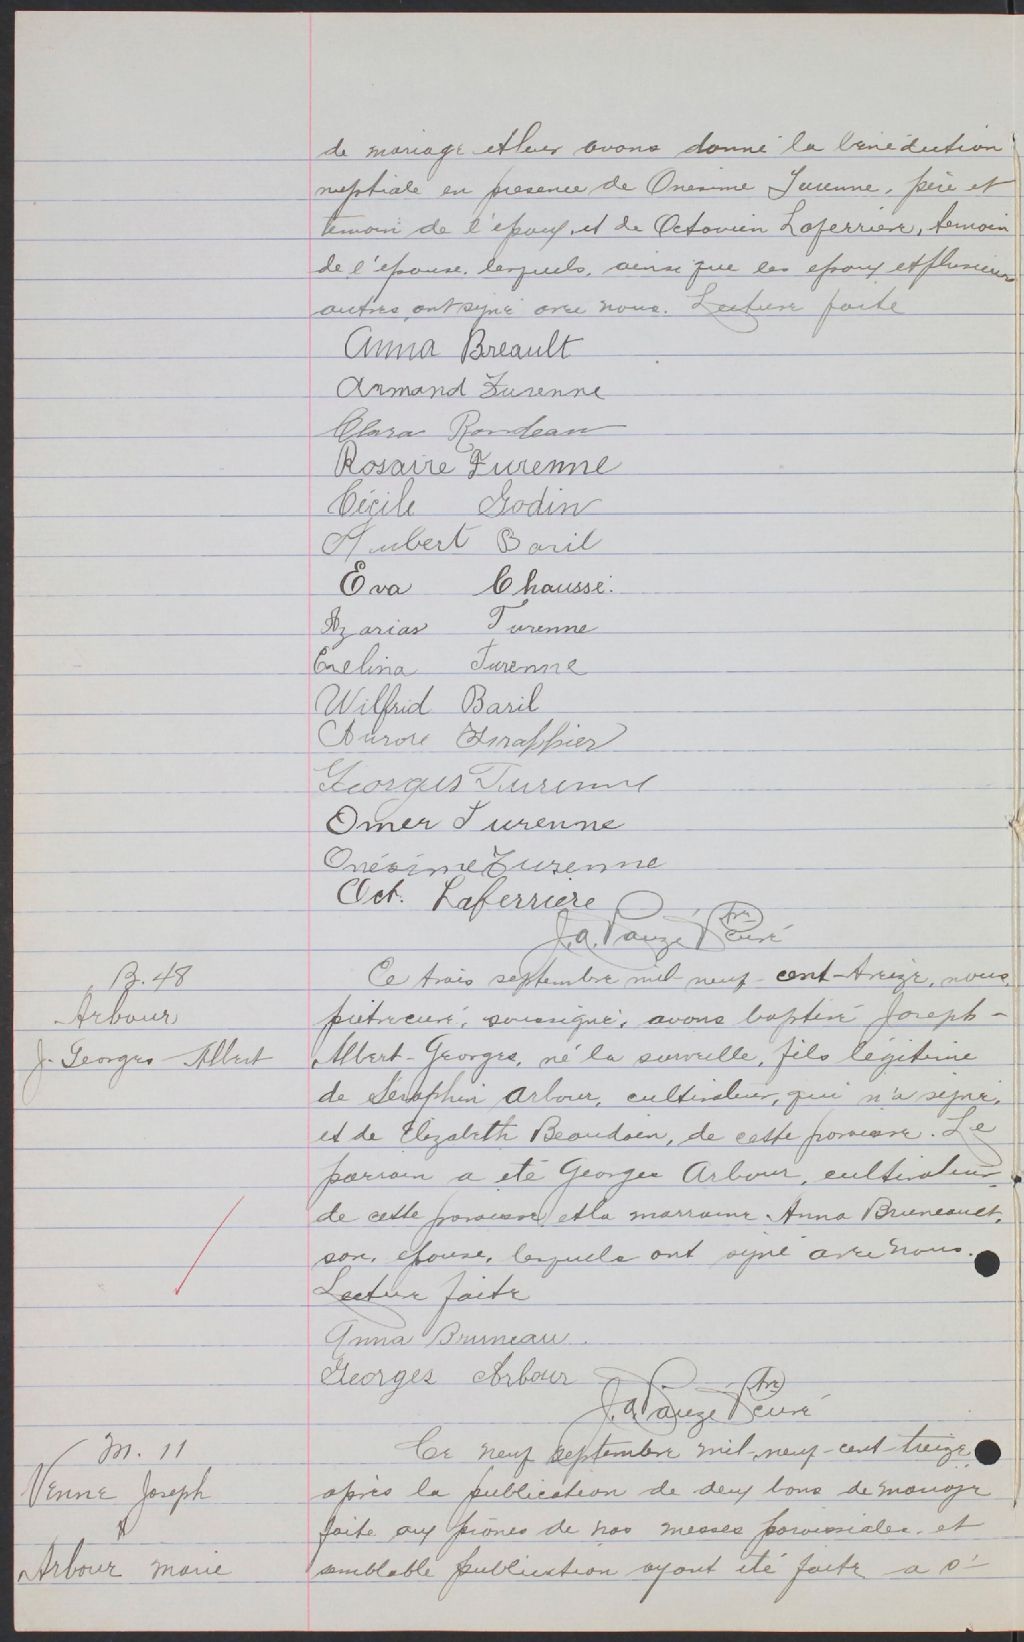 de mariage et leur avons donné la bénédiction
nuptiale en présence de Onésime Turenne, père et
témoin de l'époux, et de Octavien Laferrière, témoin
de l'épouse, lesquels, ainsi que les époux et plusieurs
autres, ont signé avec nous. Lecture faite
Anna Breault
Armand Turenne
Clara Rondeau
Rosaire Turenne
Cécile Godin
Hubert Baril
Eva Chaussé.
Azarias Turenne
Evelina Turenne
Wilfrid Baril
Aurore Frappier
Georges Turenne
Omer Turenne
Onésime Turenne
Oct. Laferrière
J. A. Pauzé Ptre curé
B. 48
Arbour
J. Georges-Albert
Ce trois septembre mil-neuf-cent-treize, nous,
prêtre curé, soussigné, avons baptisé Joseph-
Albert-Georges, né la surveille, fils légitime
de Séraphin Arbour, cultivateur, qui n'a signé,
et de Elizabeth Beaudoin, de cette paroisse. Le
parrain a été Georges Arbour, cultivateur,
de cette paroisse, et la marraine Anna Bruneault,
son épouse, lesquels ont signé avec nous.
Lecture faite
Anna Bruneau.
Georges Arbour
J. A. Pauzé Ptre curé
M. 11
Venne Joseph
&
Arbour Marie
Ce neuf septembre mil-neuf-cent-treize
après la publication de deux bans de mariage
faite aux prônes de nos messes paroissiales, et
semblable publication ayant été faite a S'-